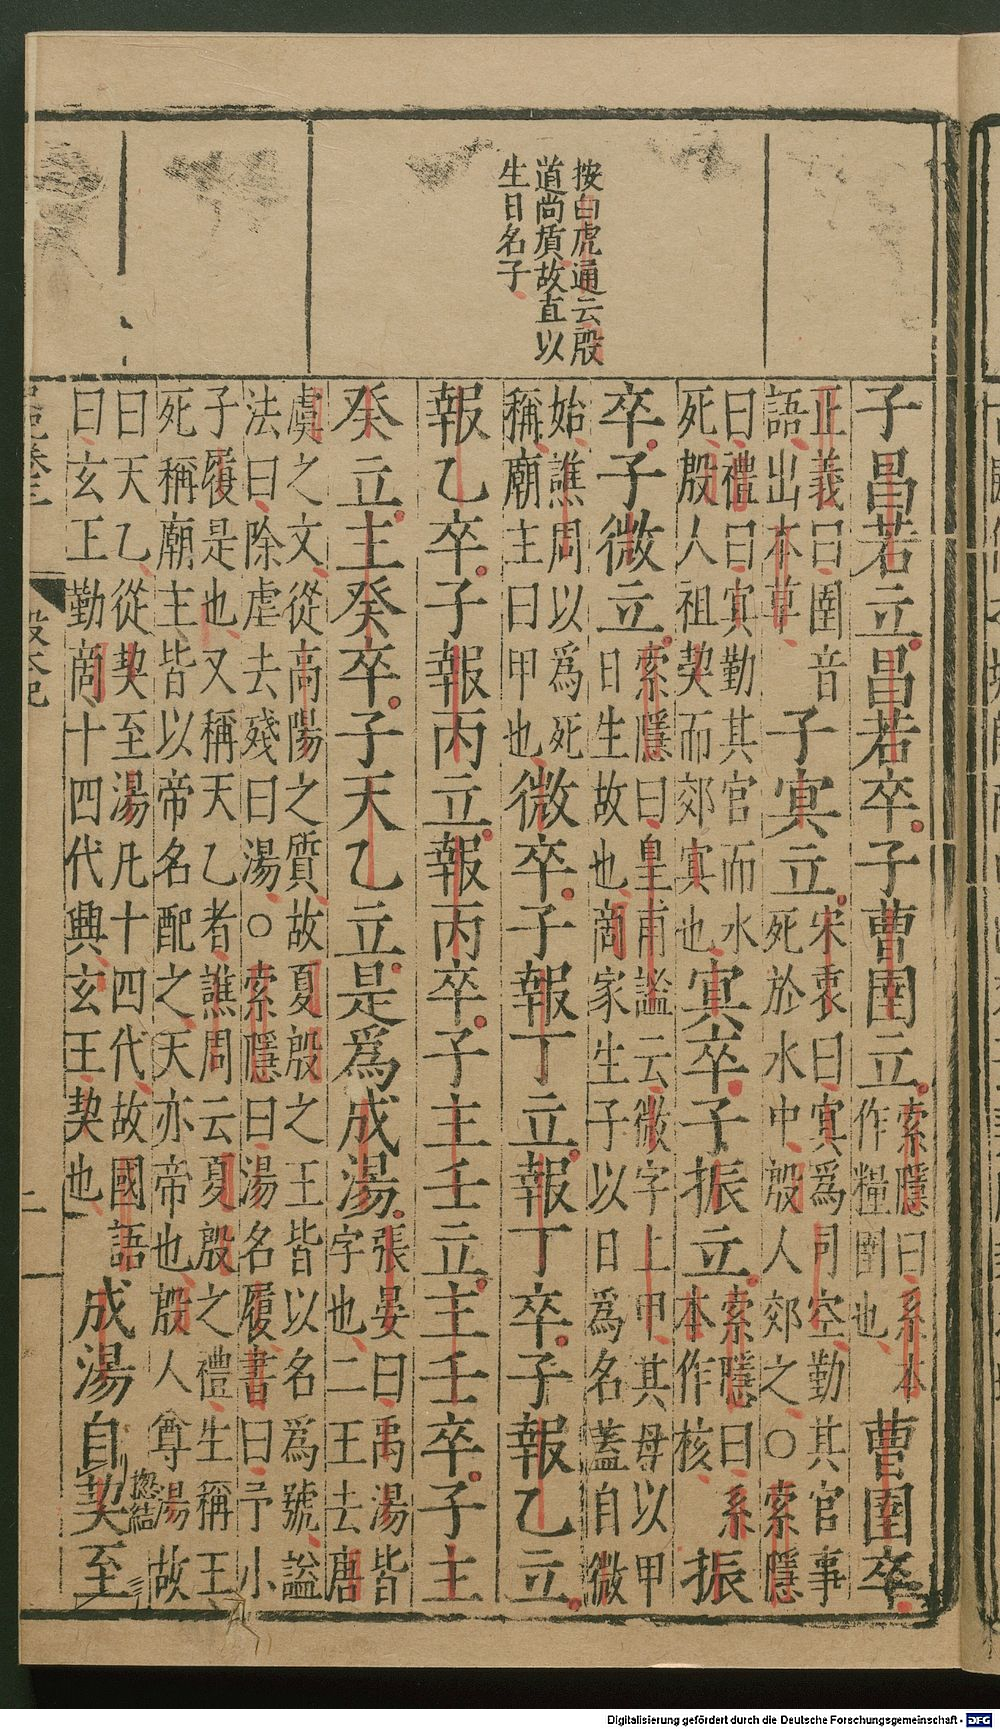 按白虎通云殷
道尚質故直以
生日名子
子昌若立昌若卒子曹圉立
索隱曰系本
作糧圉也
曹圉卒
正義曰圉音
語出本草
子冥立
宋衷曰冥爲司空勤其官事
死於水中殷人郊之○索隱
曰禮曰冥勤其官而水
死殷人祖契而郊冥也
冥卒子振立
索隱曰系
本作核
振
卒子微立
索隱曰皇甫謐云微字上甲其母以甲
日生故也商家生子以日爲名蓋自微
始譙周以爲死
稱廟主曰甲也
微卒子報丁立報丁卒子報乙立
報乙卒子報丙立報丙卒子主壬立主壬卒子主
癸立主癸卒子天乙立是爲成湯
張晏曰禹湯皆
字也二王去唐
虞之文從高陽之質故夏殷之王皆以名爲號謚
法曰除虐去殘曰湯○索隱曰湯名履書曰予小
子履是也又稱天乙者譙周云夏殷之禮生稱王
死稱廟主皆以帝名配之天亦帝也殷人尊湯故
曰天乙從契至湯凡十四代故國語
曰玄王勤商十四代興玄王契也
成湯自契至
揔結
卷三 殷本紀 二
Digitalisierung gefördert durch die Deutsche Forschungsgemeinschaft - DFG